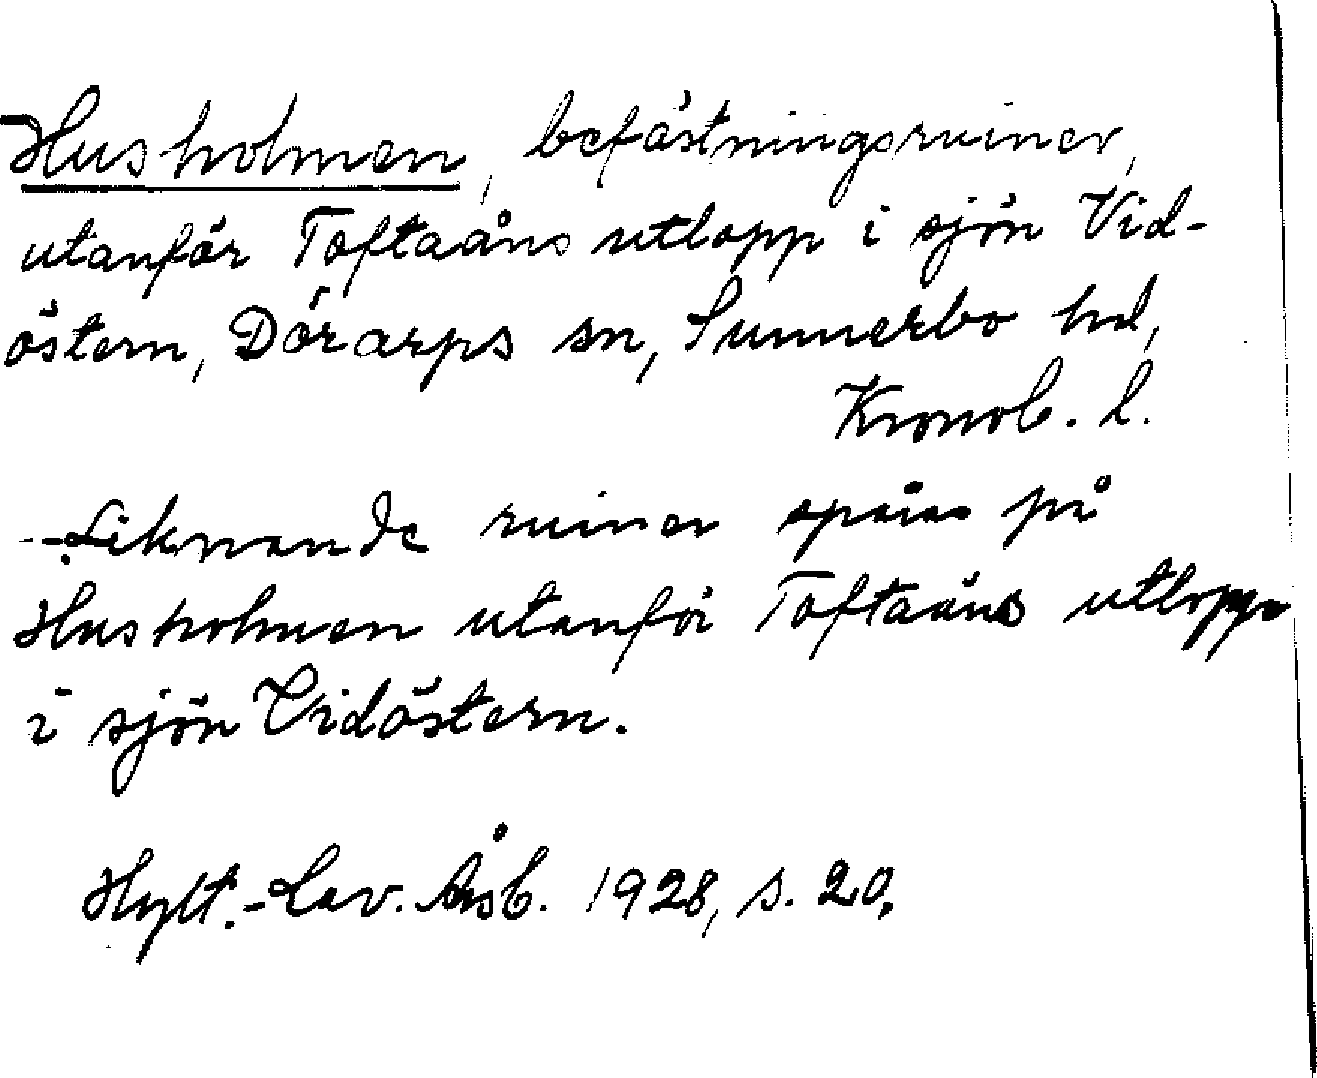 Husholmen, befästningsruiner,
utanför Toftaåns utlopp i sjön Vid-
östern, Dörarps sn, Sunnerbo hd,
Kronob. l.
- Liknande ruiner spåras på
Husholmen utanför Toftaåns utlopp
i sjön Vidöstern.
Hylt.-Cav. Årsb. 1928, s. 20.